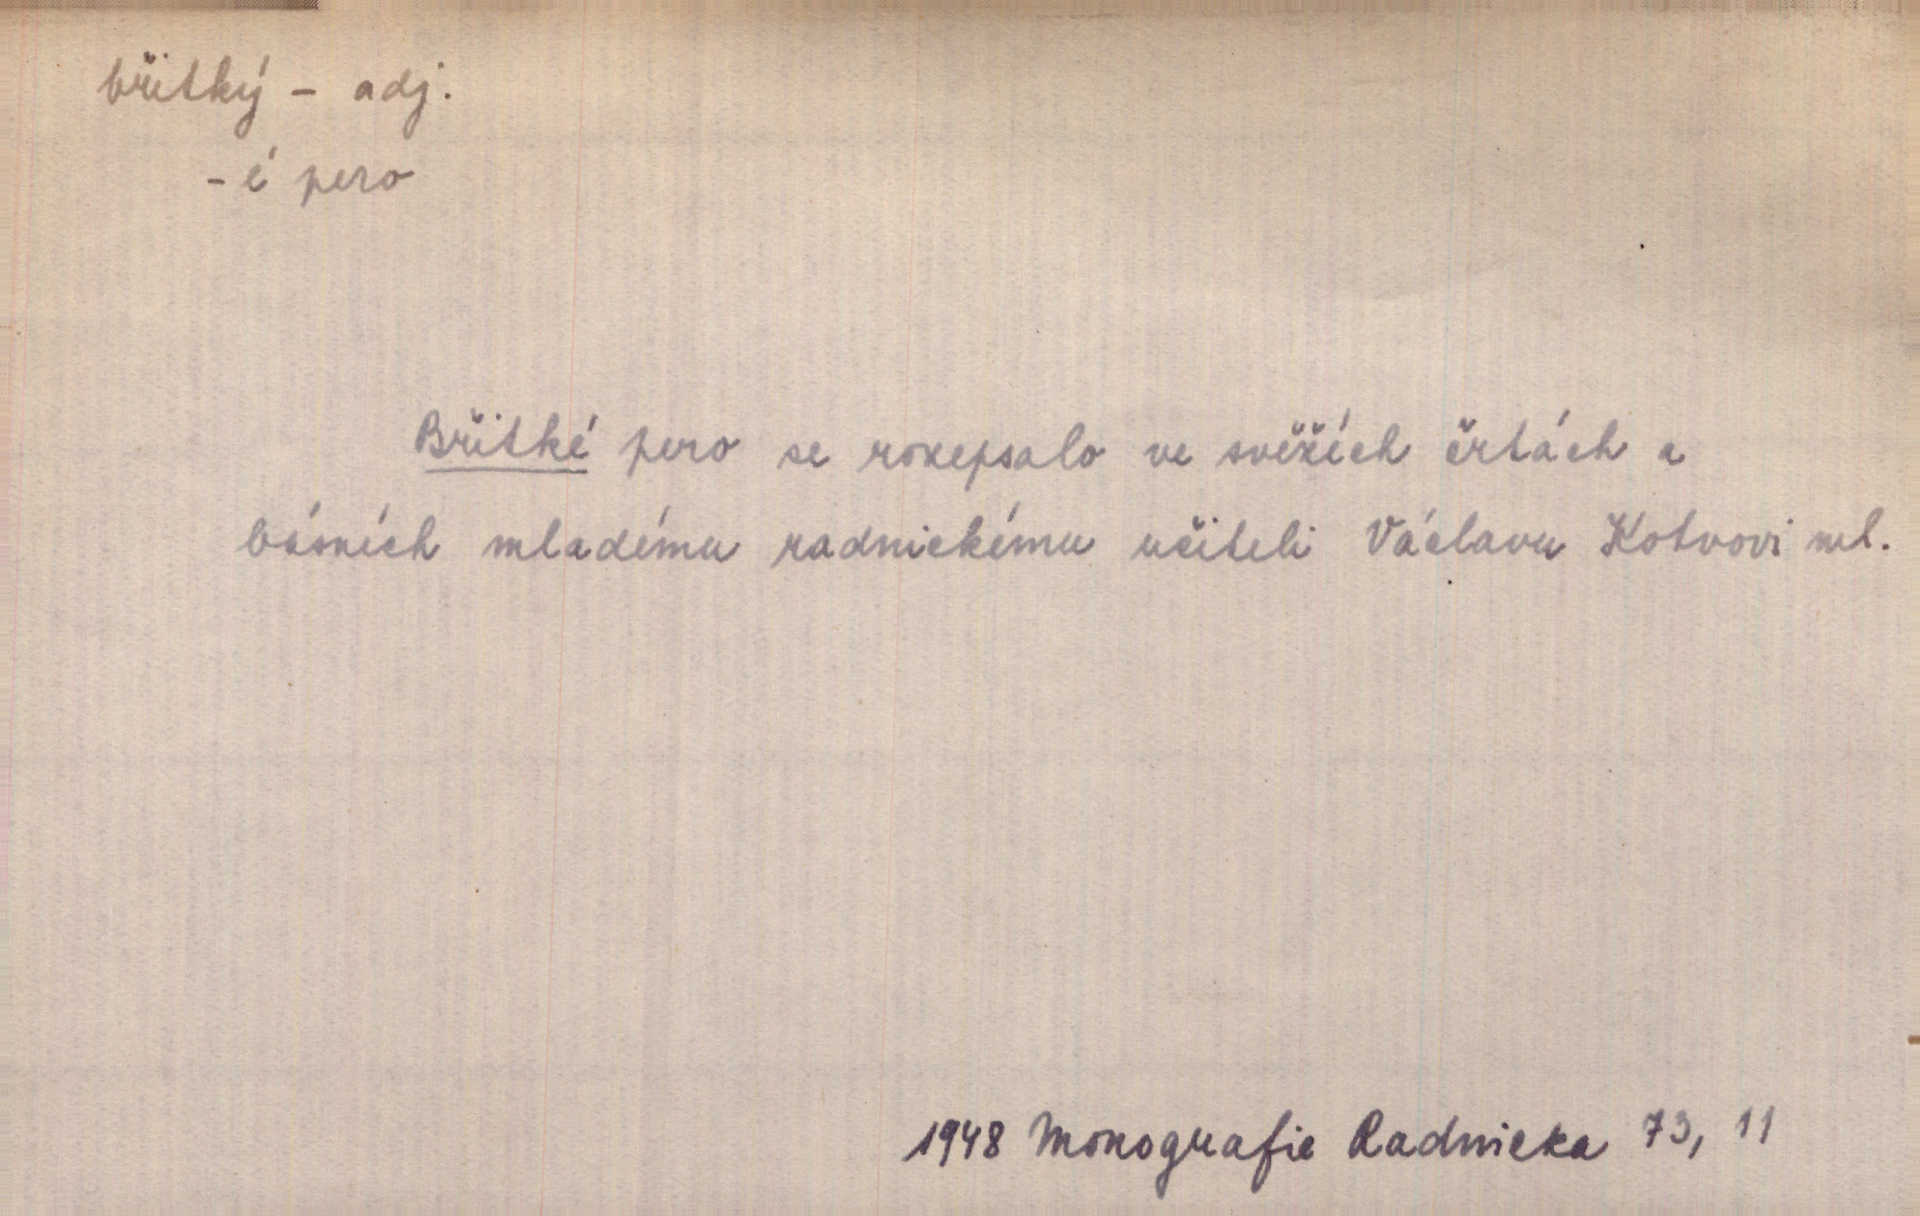 břitký – adj.
-é pero
Břitké pero se rozepsalo ve svěžích črtách a
básních mladému radnickému učiteli Václavu Kotvovi ml.
1948 Monografie Radnicka 73, 11